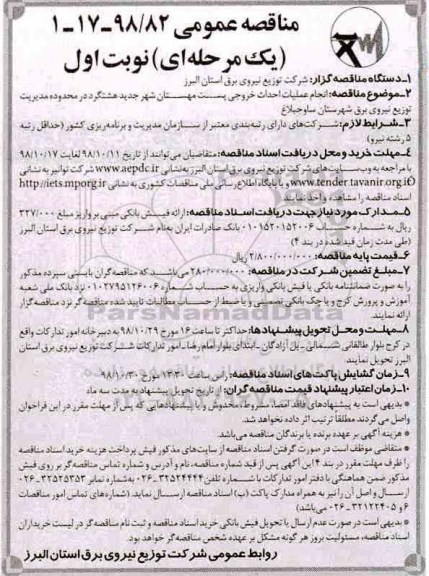 مناقصه عمومی ۹۸/۸۲-۱۷-۱
(یک مرحله‌ای) نوبت اول
۱ـ دستگاه مناقصه گزار: شرکت توزیع نیروی برق استان البرز
۲ـ موضوع مناقصه: انجام عملیات احداث خروجی پست مهستان شهر جدید هشتگرد در محدوده مدیریت
توزیع نیروی برق شهرستان ساوجبلاغ
۳ـ شرایط لازم: شرکت‌های دارای رتبه‌بندی معتبر از سازمان مدیریت و برنامه‌ریزی کشور (حداقل رتبه
۵ رشته نیرو)
۴ـ مهلت خرید و محل دریافت اسناد مناقصه: متقاضیان می‌توانند از تاریخ ۹۸/۱۰/۱۱ لغایت ۹۸/۱۰/۱۷
با مراجعه به وب‌سایت‌های شرکت توزیع نیروی برق استان البرز به نشانی www.aepdc.ir شرکت توانیر به نشانی
www.tender.tavanir.org.ir و یا پایگاه اطلاع رسانی ملی مناقصات کشوری به نشانی http://iets.mporg.ir
اسناد مناقصه را مشاهده و اخذ نمایند
۵ـ مدارک مورد نیاز جهت دریافت اسناد مناقصه: ارائه فیش بانکی مبنی بر واریز مبلغ ۳۳۷/۰۰۰
ریال به شماره حساب ۰۱۰۱۵۲۰۱۵۲۰۰۶ بانک صادرات ایران به‌نام شرکت توزیع نیروی برق استان البرز
(طی مدت زمان قید شده در بند ۴)
۶ـ قیمت پایه مناقصه: ۲/۸۰۰/۰۰۰/۰۰۰ ریال
۷ـ مبلغ تضمین شرکت در مناقصه: ۲۸۰/۰۰۰/۰۰۰ می‌باشد که مناقصه‌گران بایستی سپرده مذکور
را به صورت ضمانتنامه بانکی یا فیش بانکی واریزی به حساب شماره ۰۱۰۲۷۹۵۱۴۶۰۰۶ نزد بانک ملی شعبه
آموزش و پرورش کرج و یا چک بانکی تضمینی و یا ضبط از حساب مطالبات تایید شده مناقصه گر نزد مناقصه گزار
ارائه نمایند.
۸ـ مهلت و محل تحویل پیشنهادها: حداکثر تا ساعت ۱۶ مورخ ۹۸/۱۰/۲۹ به دبیرخانه امور تدارکات واقع
در کرج بلوار طالقانی شمالی ـ پل آزادگان ـ ابتدای بلوار امام رضا ـ امور تدارکات شرکت توزیع نیروی برق استان
البرز تحویل نمایند.
۹ـ زمان گشایش پاکت‌های اسناد مناقصه: راس ساعت ۱۳:۳۰ مورخ ۹۸/۱۰/۳۰
۱۰ـ زمان اعتبار پیشنهاد قیمت مناقصه گران: از تاریخ تحویل پیشنهاد به مدت سه ماه
* بدیهی است به پیشنهادهای فاقد امضا، مشروط، مخدوش و یا پیشنهادهایی که پس از مهلت مقرر در این فراخوان
واصل می‌گردند مطلقا ترتیب اثر داده نخواهد شد.
* هزینه آگهی بر عهده برنده یا برندگان مناقصه می‌باشد.
* متقاضی موظف است در صورت گرفتن اسناد مناقصه از سایت‌های مذکور فیش پرداخت هزینه خرید اسناد مناقصه
را ظرف مهلت مقرر در بند ۴ این آگهی پس از قید شماره مناقصه، نام و آدرس و شماره تماس مناقصه گر بر روی فیش
مذکور ضمن هماهنگی با دفتر امور تدارکات با شماره تلفن ۳۲۵۲۴۴۴۴-۰۲۶ به شماره نمابر ۳۲۵۲۵۳۵۳-۰۲۶
ارسال و اصل آن را نیز به همراه مدارک پاکت (پ) اسناد مناقصه ارسال نماید. (شماره‌های تماس امور مناقصات
۶ و ۳۲۱۲۲۴۰۵-۰۲۶ می‌باشد)
* بدیهی است در صورت عدم ارسال یا تحویل فیش بانکی خرید اسناد مناقصه و ثبت نام مناقصه گر در لیست خریداران
اسناد مناقصه، مسئولیت بروز هر گونه مشکل بر عهده شخص مناقصه گر خواهد بود.
روابط عمومی شرکت توزیع نیروی برق استان البرز